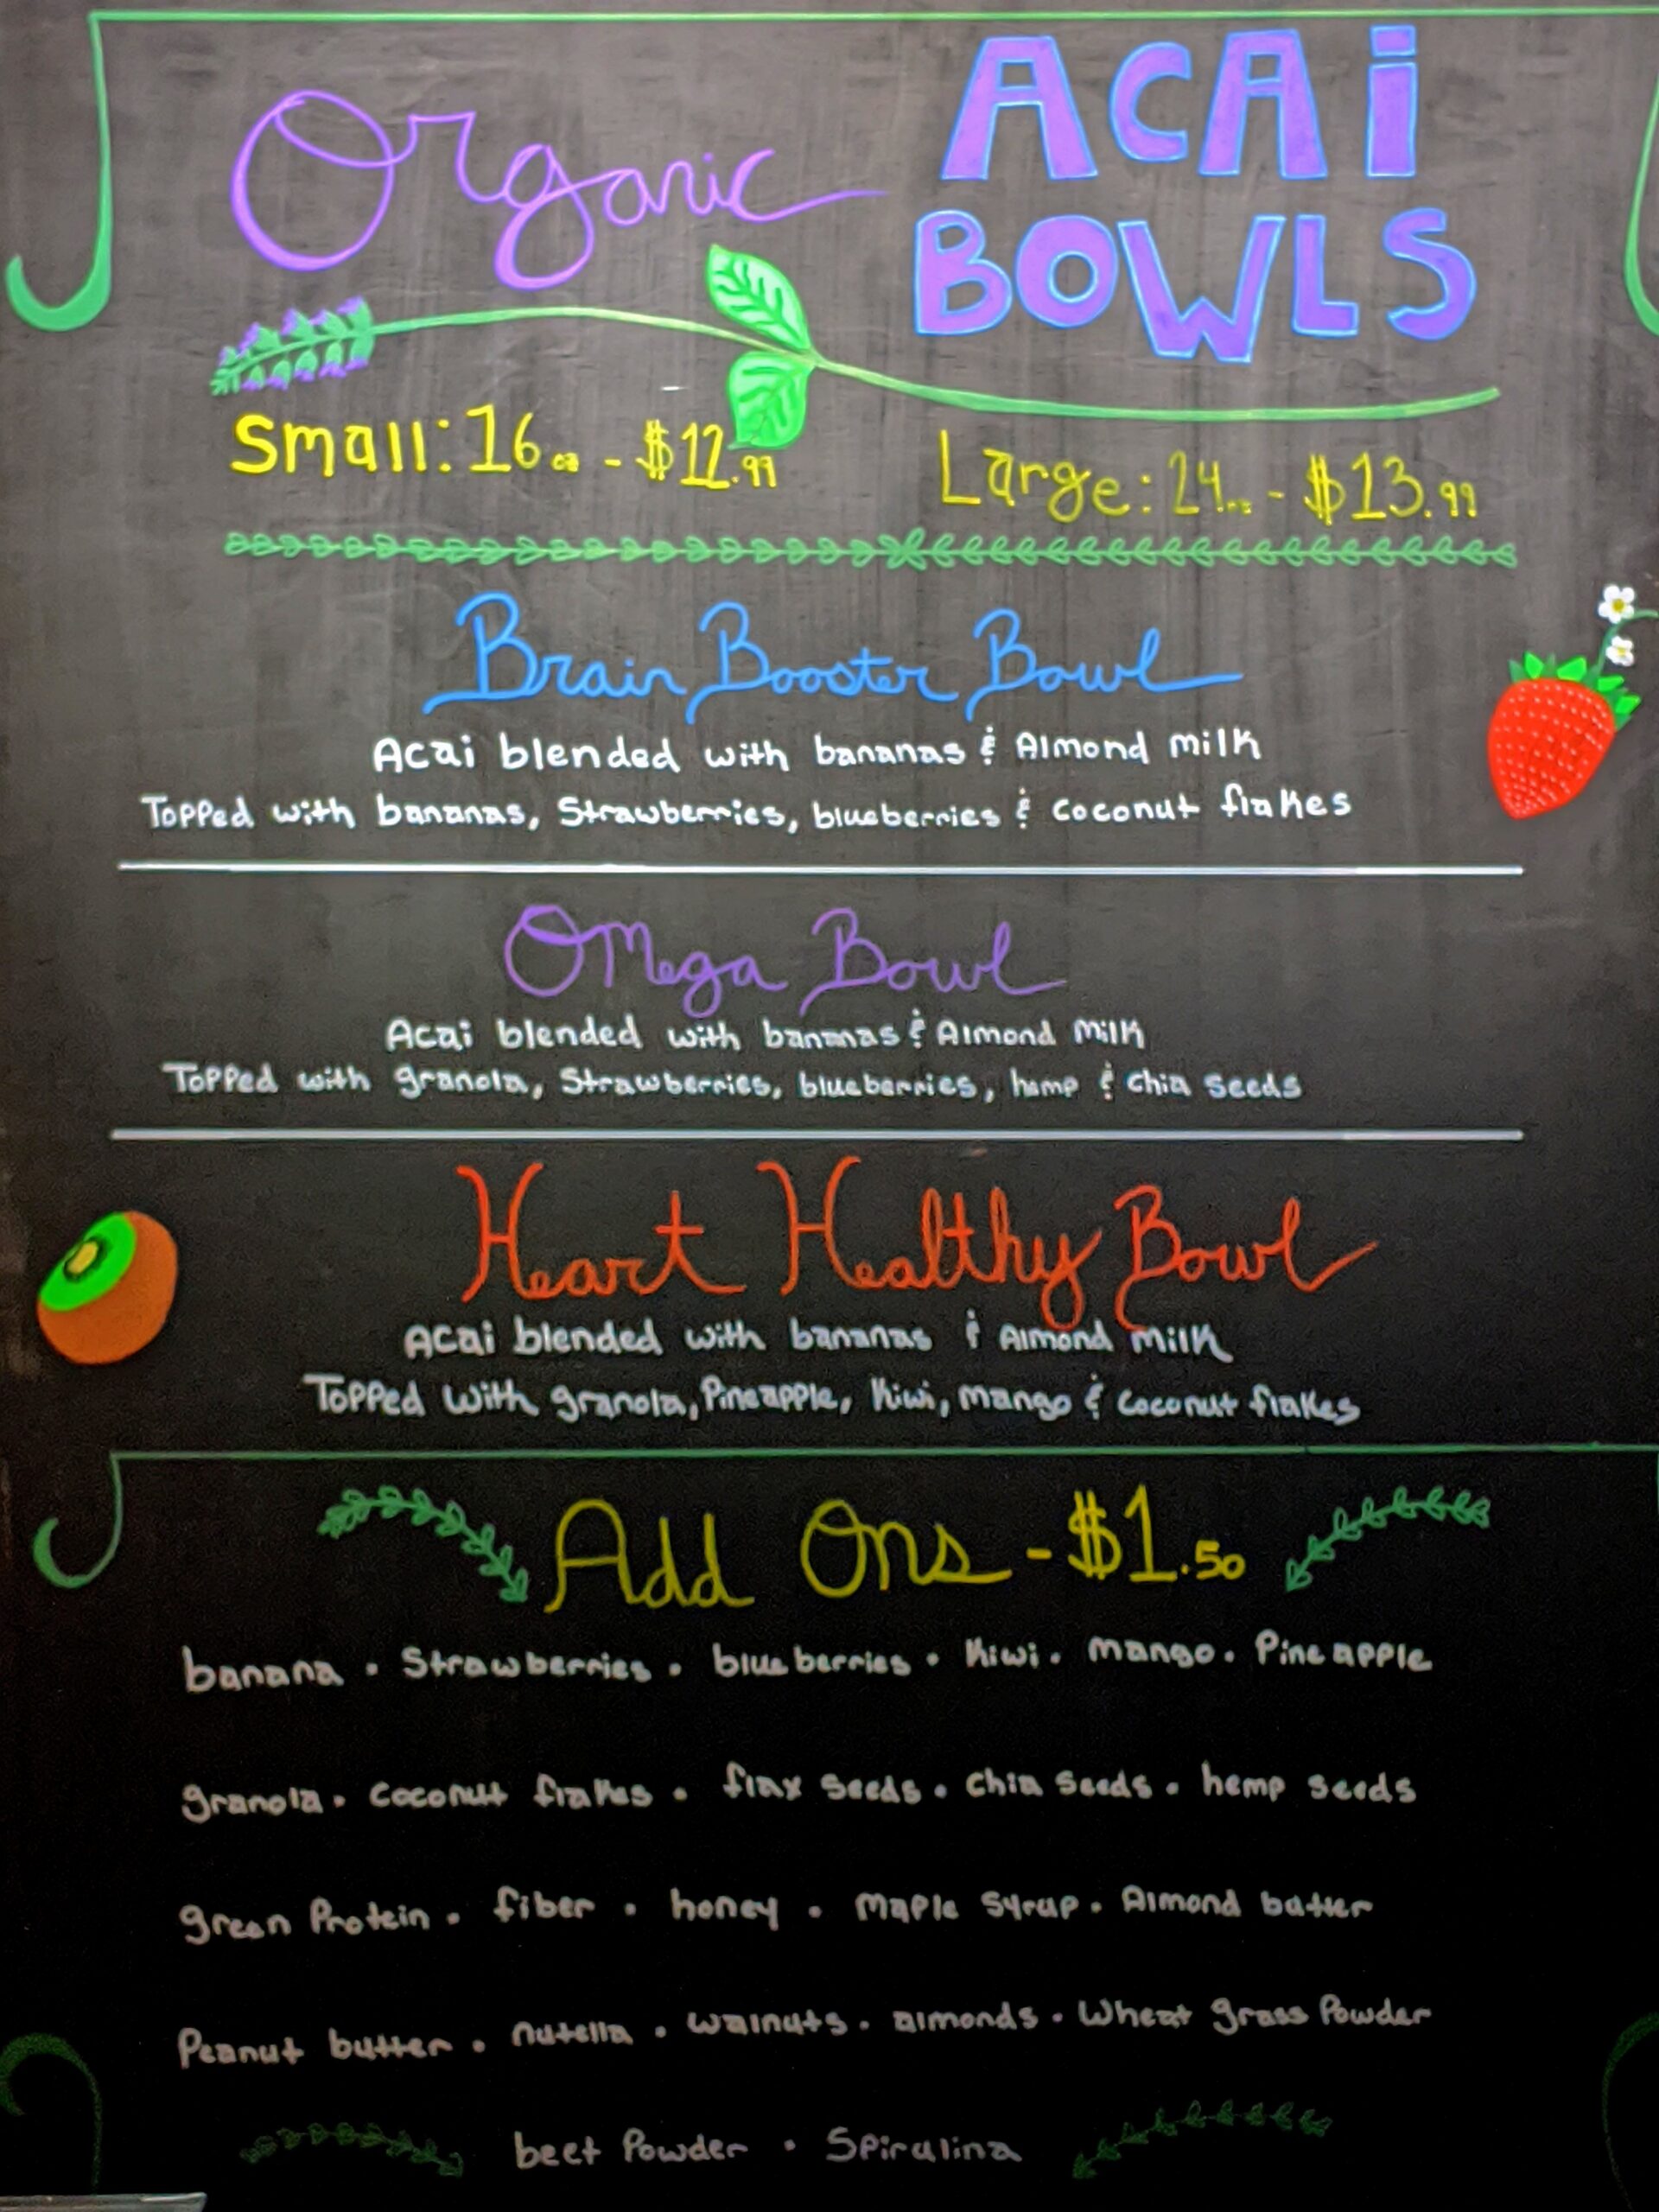 Organic ACAi BOWLS
Small: 16 oz - $12.99 Large: 24 oz - $13.99
Brain Booster Bowl
Acai blended with bananas & Almond milk
Topped with bananas, Strawberries, blueberries & coconut flakes
Omega Bowl
Acai blended with bananas & Almond milk
Topped with granola, Strawberries, blueberries, hemp & chia seeds
Heart Healthy Bowl
Acai blended with bananas & Almond milk
Topped with granola, Pineapple, Kiwi, mango & coconut flakes
Add Ons - $1.50
banana • Strawberries • blueberries • Kiwi • mango • Pineapple
granola • coconut flakes • flax seeds • chia seeds • hemp seeds
green Protein • fiber • honey • maple syrup • Almond butter
Peanut butter • nutella • walnuts • almonds • Wheat grass Powder
beet Powder • Spirulina